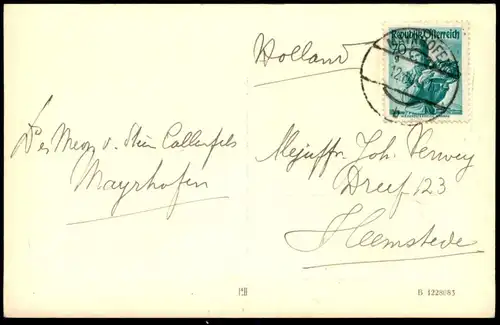 Holland
Republik Österreich
MAYRHOFEN
Des Meoz v. Stein Callenfels
Mayrhofen
Mejuffr. Joh. Verwey
Dreef 123
Heemstede
B 1228083